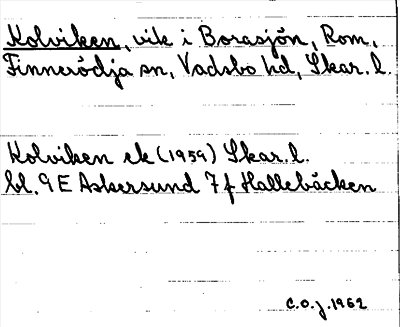 Kolviken, vik i Borasjön, Rom,
Finnerödja sn, Vadsbo hd, Skar. l.
Kolviken ek (1959) Skar. l.
bl. 9 E Askersund 7 f Hallebäcken
C.O.J. 1962